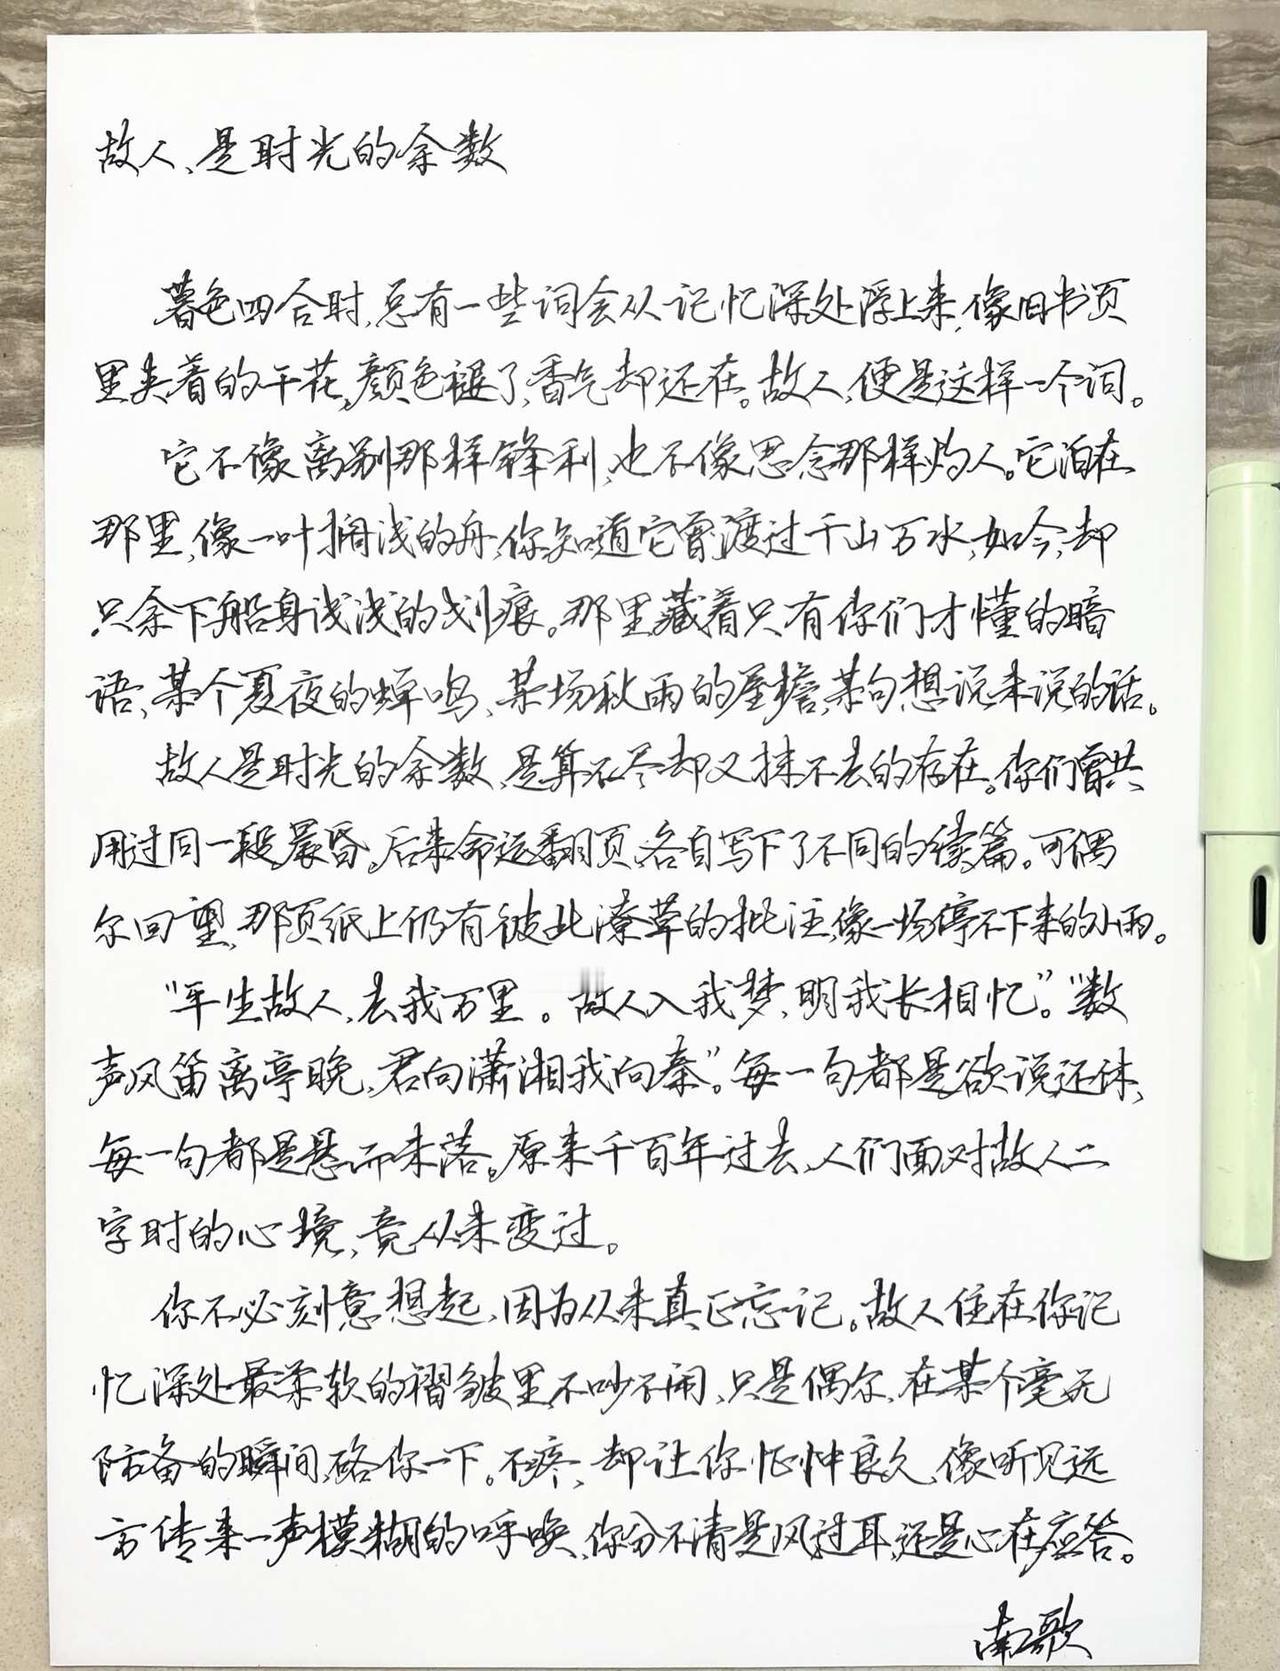 故人，是时光的余数
暮色四合时，总有一些词会从记忆深处浮上来，像旧书页
里夹着的干花，颜色褪了，香气却还在。故人，便是这样一个词。
它不像离别那样锋利，也不像思念那样灼人。它泊在
那里，像一叶搁浅的舟，你知道它曾渡过千山万水，如今，却
只余下船身浅浅的划痕。那里藏着只有你们才懂的暗
语、某个夏夜的蝉鸣、某场秋雨的屋檐，某句想说未说的话。
故人是时光的余数，是算不尽却又抹不去的存在。你们曾共
用过同一段晨昏。后来命运翻页，各自写下了不同的续篇。可偶
尔回望，那页纸上仍有彼此潦草的批注，像一场停不下来的小雨。
“平生故人，去我万里。故人入我梦，明我长相忆”。“数
声风笛离亭晚，君向潇湘我向秦”。每一句都是欲说还休，
每一句都是悬而未落。原来千百年过去，人们面对故人二
字时的心境，竟从未变过。
你不必刻意想起，因为从未真正忘记。故人住在你记
忆深处最柔软的褶皱里，不吵不闹，只是偶尔，在某个毫无
防备的瞬间，硌你一下。不疼，却让你怔忡良久，像听见远
方传来一声模糊的呼唤，你分不清是风过耳，还是心在应答。
南歌